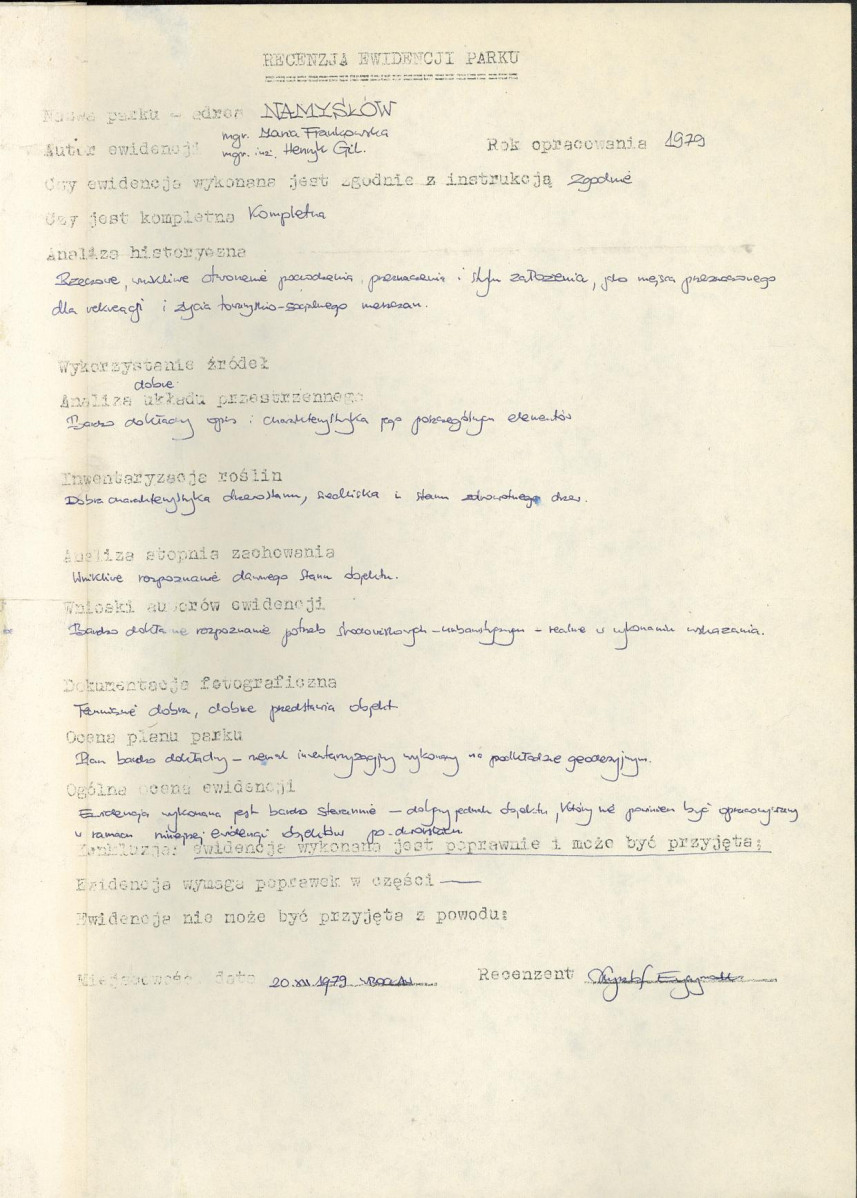 RECENZJA EWIDENCJI PARKU
Nazwa parku - adres NAMYSŁÓW
mgr. Maria Frankowska
Autor ewidencji mgr. inż. Henryk Gil. Rok opracowania 1979
Czy ewidencja wykonana jest zgodnie z instrukcją zgodnie
Czy jest kompletna Kompletna
Analiza historyczna
Rzeczowe, wnikliwe pochodzenia, przeznaczenia i stylu założenia, jako miejsca przeznaczonego
dla rekreacji i życia towarzysko-socjalnego mieszczan.
Wykorzystanie źródeł
dobre
Analiza układu przestrzennego
Bardzo dokładny opis i charakterystyka jego poszczególnych elementów
Inwentaryzacja roślin
Dobra charakterystyka drzewostanu, siedliska i stanu zdrowotnego drzew.
Analiza stopnia zachowania
Wnikliwe rozpoznanie dawnego stanu objektu.
Wnioski autorów ewidencji
Bardzo dokładne rozpoznanie potrzeb środowiskowych - - realne w wykonaniu wskazania.
Dokumentacja fotograficzna
dobra, dobrze przedstawia objekt
Ocena planu parku
Plan bardzo dokładny - inwentaryzacyjny wykonany na podkładzie geodezyjnym.
Ogólna ocena ewidencji
Ewidencja wykonana jest bardzo starannie - dotyczy jednak objektu, który nie powinien być opracowywany
w ramach niniejszej ewidencji objektów po-dworskich.
Konkluzja: ewidencja wykonana jest poprawnie i może być przyjęta;
Ewidencja wymaga poprawek w części —
Ewidencja nie może być przyjęta z powodu:
Miejscowość, data 20.XII.1979 WROCŁAW Recenzent